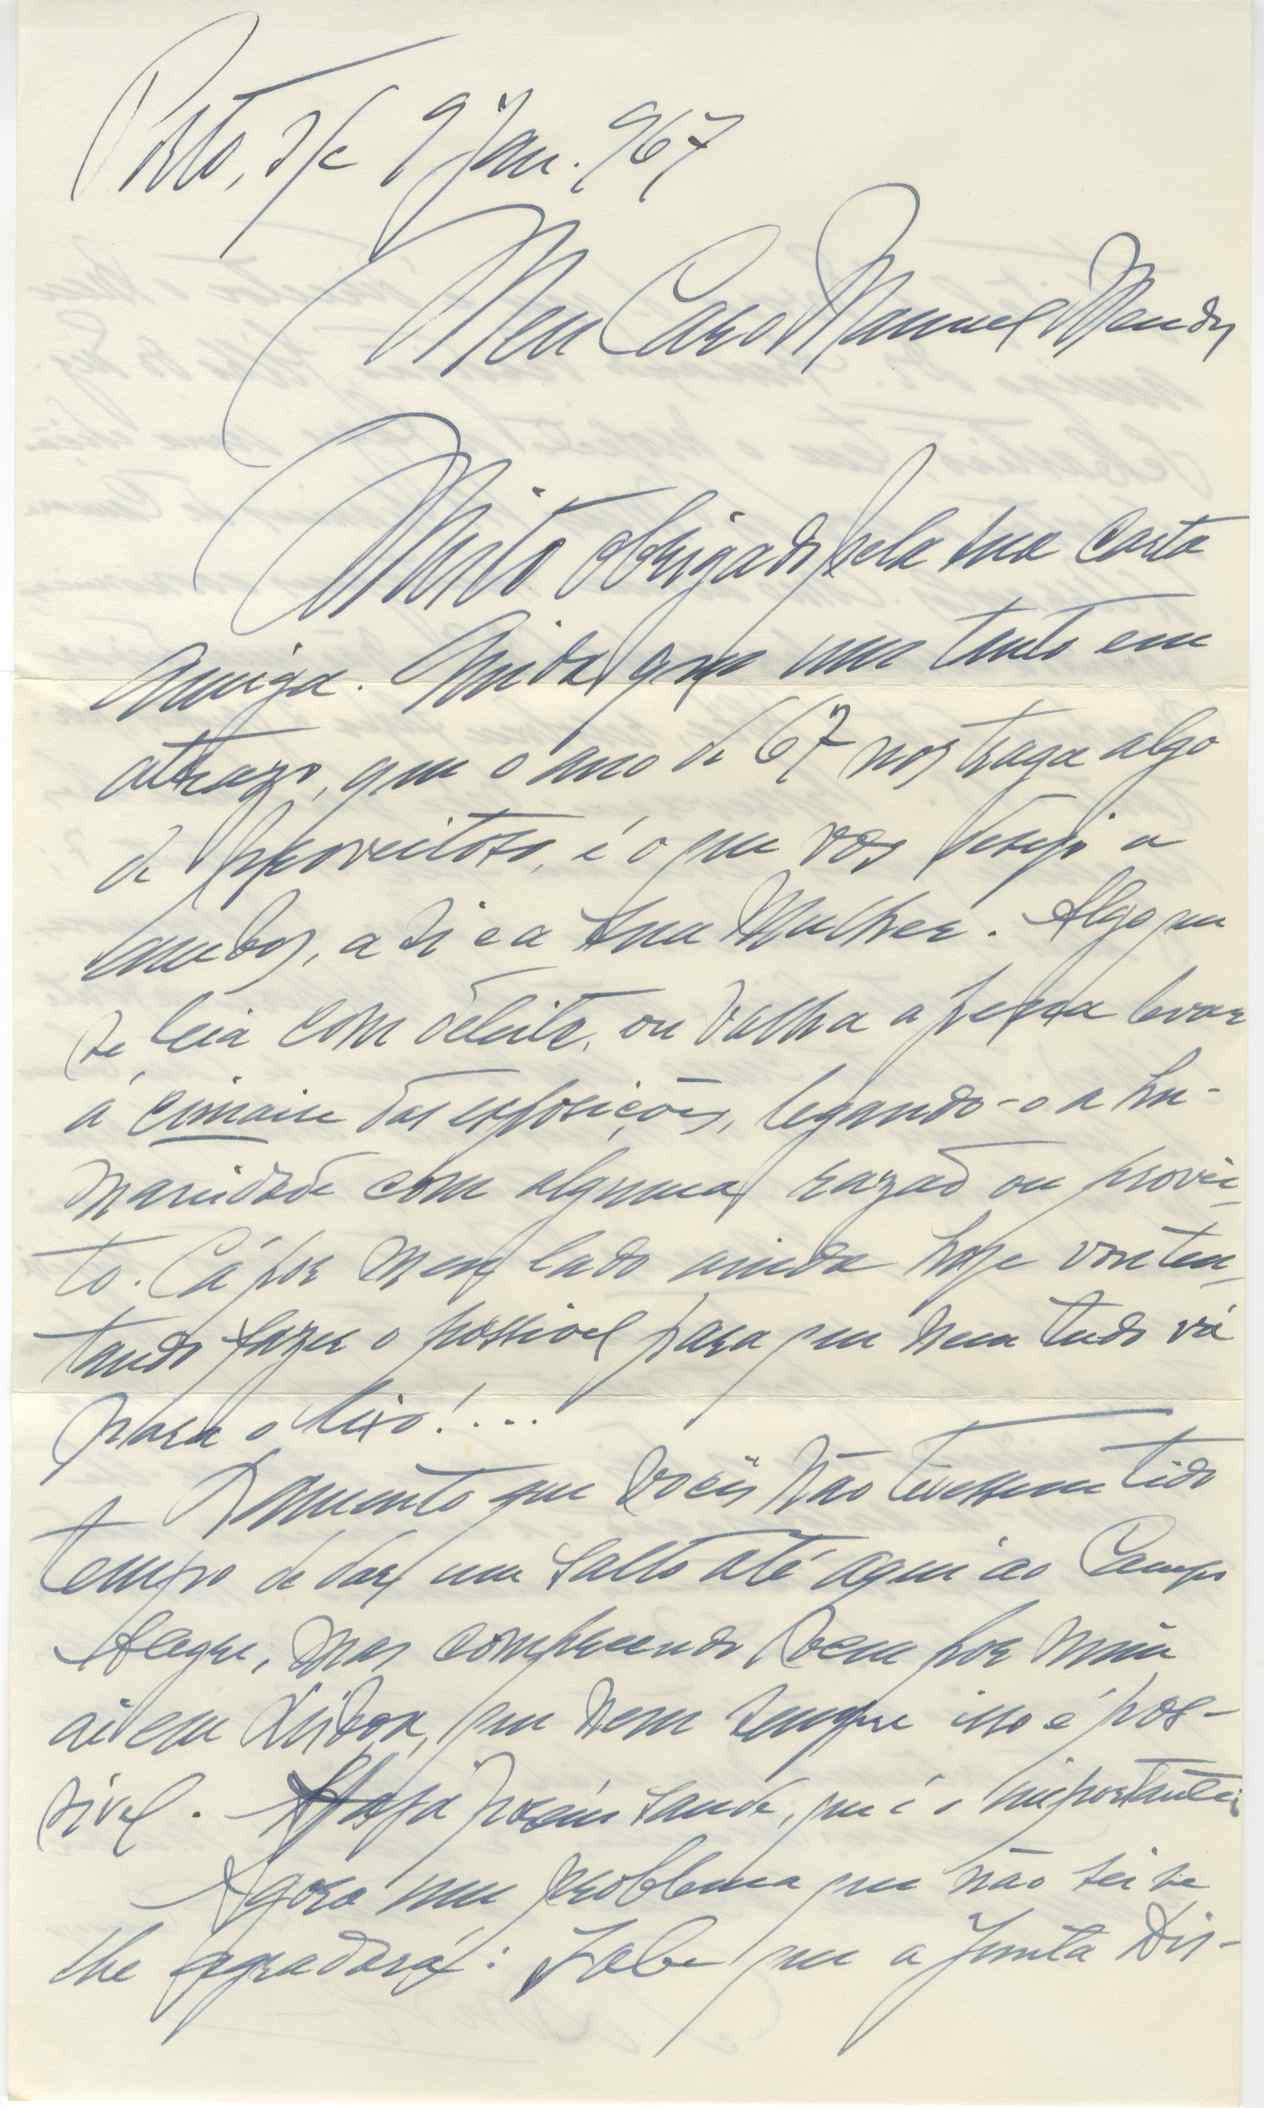 Porto, s/c 9 Jan. 967
Meu Caro Manuel Mendes
Muito obrigado pela sua carta
amiga. Ainda que um tanto em
atrazo, que o ano de 67 nos traga algo
de proveitoso, é o que vos desejo a
ambos, a si e a sua Mulher. Algo que
se leia com deleite, ou valha a pena levar
á cimaise das exposições, legando-o a hu-
manidade com alguma razão ou provei-
to. Cá por meu lado ainda hoje vou ten-
tando fazer o possivel para que nem tudo vá
para o lixo!...
Lamento que vocês não tivessem tido
tempo de dar um salto até aqui ao Campo
Alegre, mas compreendo bem por mim
ai em Lisboa, que nem sempre isso é pos-
sivel. Haja porém saude, que é o importante.
Agora um problema que não sei se
lhe agradará: Sabe que a Junta Dis-